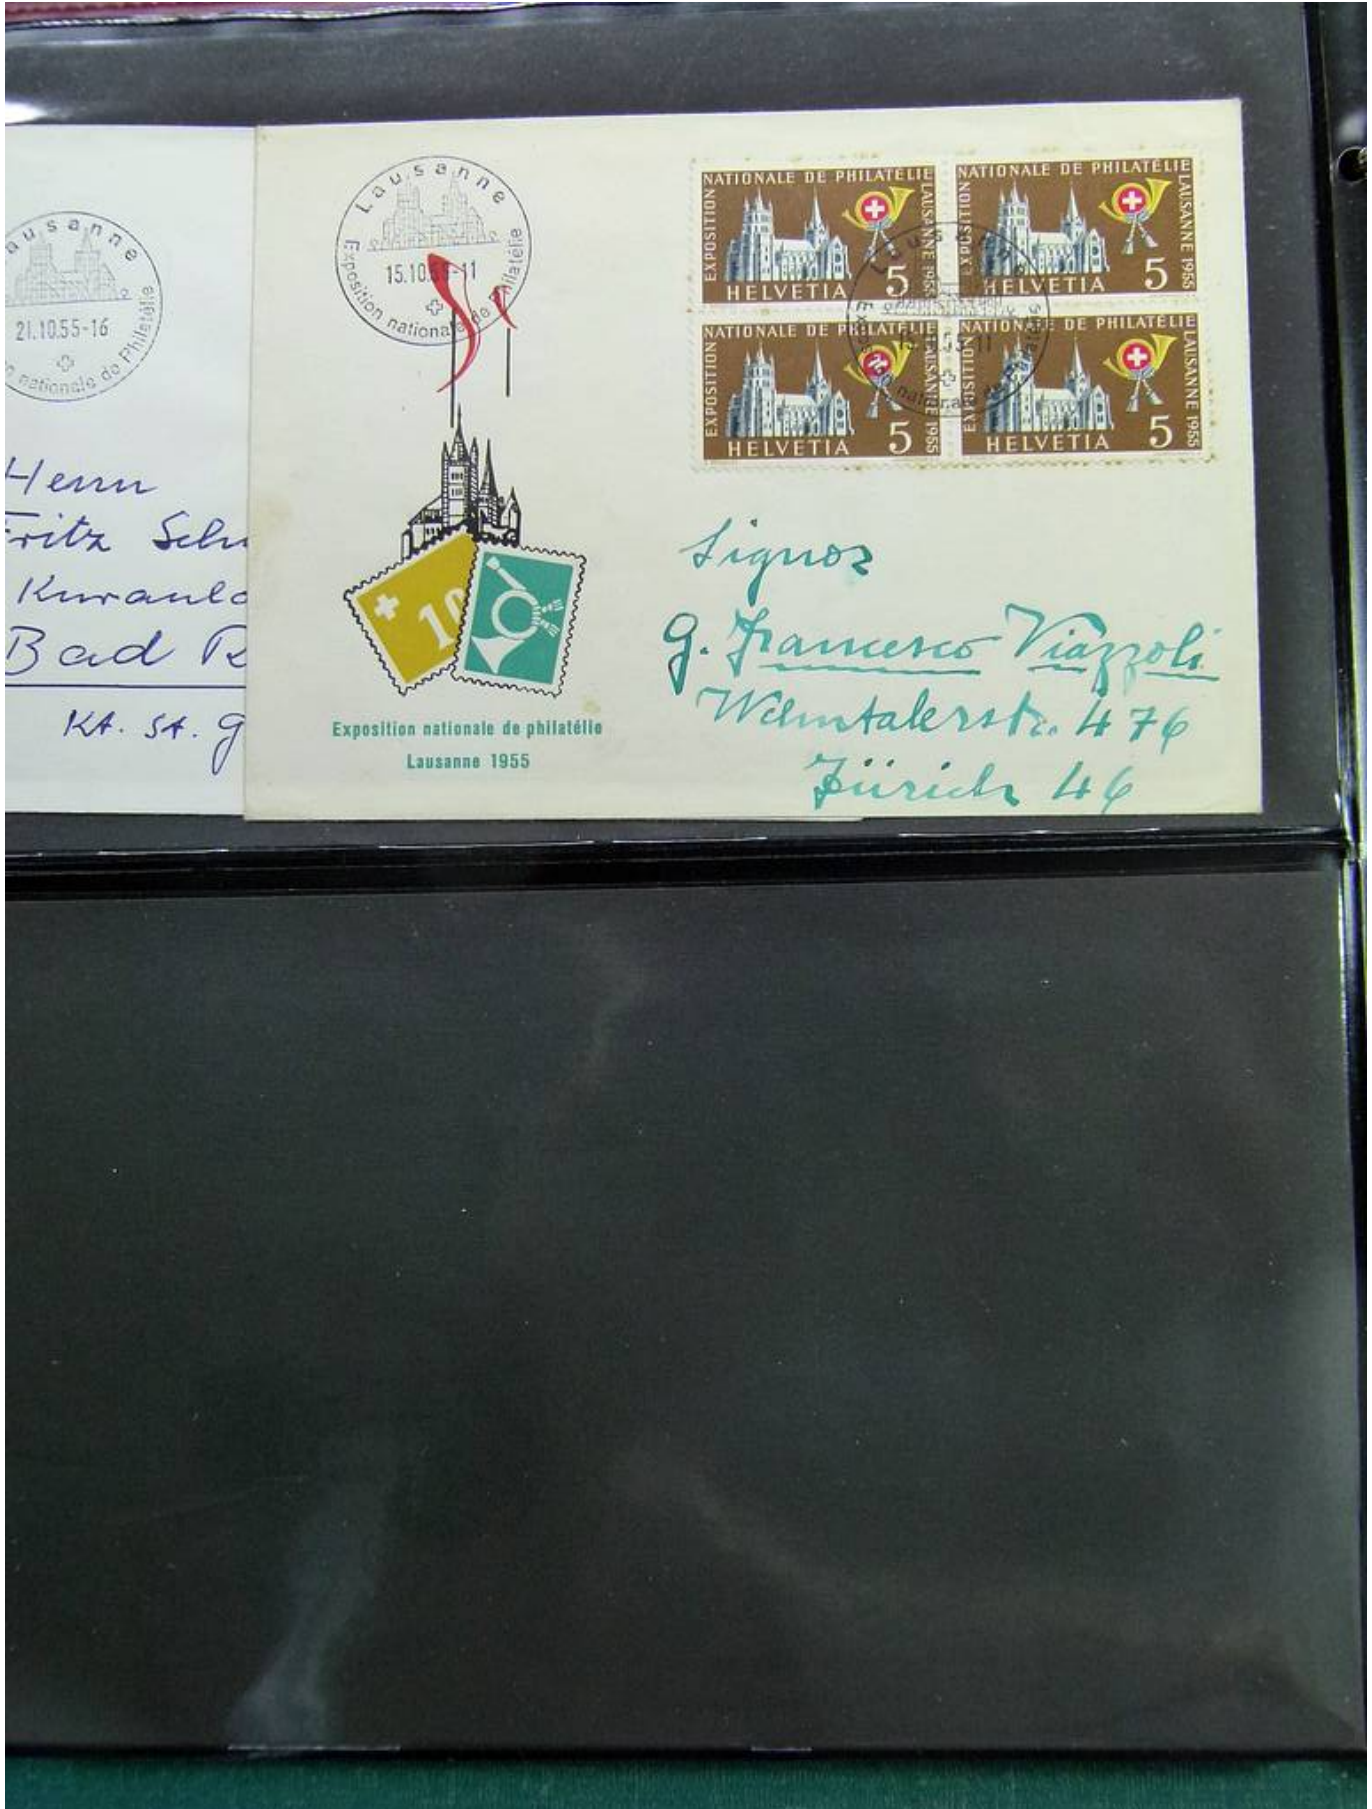 Lausanne
21.10.55-16
nationale de Philatélie
Herrn
Fritz
Bad
Kt. St. G
Lausanne
15.10.55-11
Exposition nationale de Philatélie
10
Exposition nationale de philatélie
Lausanne 1955
EXPOSITION NATIONALE DE PHILATÉLIE LAUSANNE 1955
HELVETIA 5
EXPOSITION NATIONALE DE PHILATÉLIE LAUSANNE 1955
HELVETIA 5
EXPOSITION NATIONALE DE PHILATÉLIE LAUSANNE 1955
HELVETIA 5
EXPOSITION NATIONALE DE PHILATÉLIE LAUSANNE 1955
HELVETIA 5
Signor
G. Francesco Viazzoli
Wehntalerstr. 476
Zürich 46